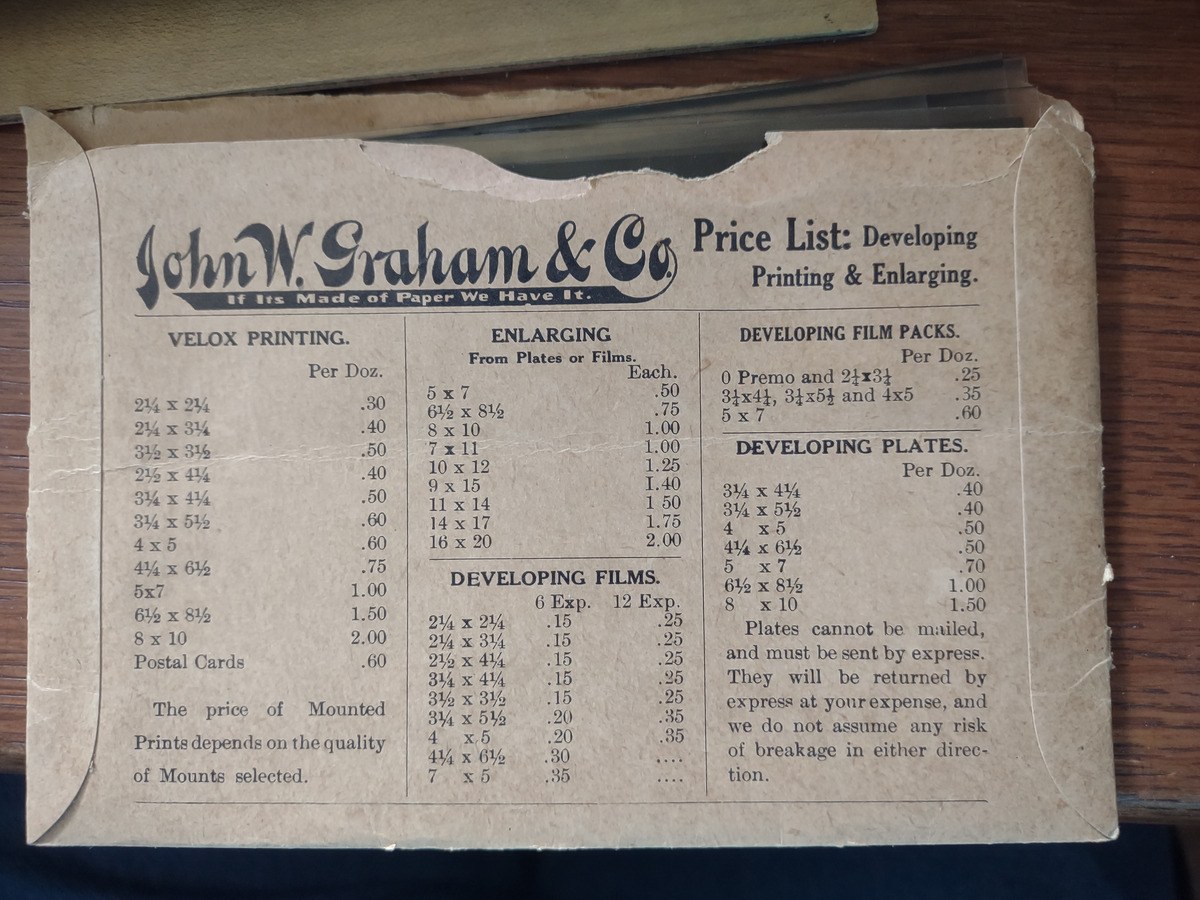 John W. Graham & Co.
If Its Made of Paper We Have It.
Price List: Developing
Printing & Enlarging.
VELOX PRINTING.
Per Doz.
2¼ x 2¼ .30
2¼ x 3¼ .40
3½ x 3½ .50
2½ x 4¼ .40
3¼ x 4¼ .50
3¼ x 5½ .60
4 x 5 .60
4¼ x 6½ .75
5x7 1.00
6½ x 8½ 1.50
8 x 10 2.00
Postal Cards .60
The price of Mounted
Prints depends on the quality
of Mounts selected.
ENLARGING
From Plates or Films.
Each.
5 x 7 .50
6½ x 8½ .75
8 x 10 1.00
7 x 11 1.00
10 x 12 1.25
9 x 15 1.40
11 x 14 1 50
14 x 17 1.75
16 x 20 2.00
DEVELOPING FILMS.
6 Exp. 12 Exp.
2¼ x 2¼ .15 .25
2¼ x 3¼ .15 .25
2½ x 4¼ .15 .25
3¼ x 4¼ .15 .25
3½ x 3½ .15 .25
3¼ x 5½ .20 .35
4 x 5 .20 .35
4¼ x 6½ .30 ....
7 x 5 .35 ....
DEVELOPING FILM PACKS.
Per Doz.
0 Premo and 2¼x3¼ .25
3¼x4¼, 3¼x5½ and 4x5 .35
5 x 7 .60
DEVELOPING PLATES.
Per Doz.
3¼ x 4¼ .40
3¼ x 5½ .40
4 x 5 .50
4¼ x 6½ .50
5 x 7 .70
6½ x 8½ 1.00
8 x 10 1.50
Plates cannot be mailed,
and must be sent by express.
They will be returned by
express at your expense, and
we do not assume any risk
of breakage in either direc-
tion.